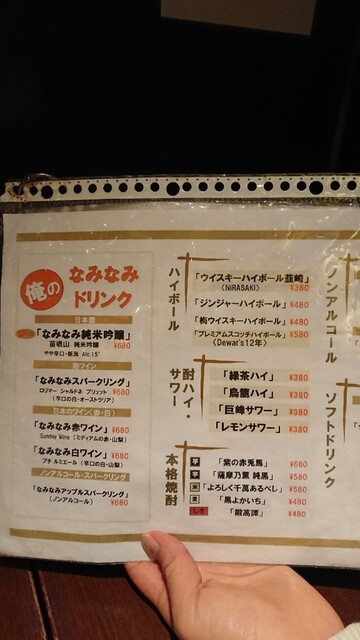 俺の
なみなみ
ドリンク
日本酒
「なみなみ純米吟醸」
苗場山 純米吟醸 ¥680
やや辛口・新潟 Alc.15°
泡ワイン
「なみなみスパークリング」
ロリマー シャルドネ ブリュット ¥680
(辛口の白・オーストラリア)
日本のワイン(赤・白)
「なみなみ赤ワイン」 ¥680
Sunday Wine (ミディアムの赤・山梨)
「なみなみ白ワイン」 ¥680
プチ ルミエール (辛口の白・山梨)
ノンアルコール・スパークリング
「なみなみアップルスパークリング」
(ノンアルコール) ¥680
ハイボール
「ウイスキーハイボール韮崎」
(NiRASAKI) ¥380
「ジンジャーハイボール」 ¥480
「梅ウイスキーハイボール」 ¥480
「プレミアムスコッチハイボール」 ¥580
〈Dewar's12年〉
酎ハイ・サワー
「緑茶ハイ」 ¥380
「烏龍ハイ」 ¥380
「巨峰サワー」 ¥380
「レモンサワー」 ¥380
本格焼酎
芋 「紫の赤兎馬」 ¥680
芋 「薩摩乃薫 純黒」 ¥580
米 「よろしく千萬あるべし」 ¥580
麦 「黒よかいち」 ¥480
しそ 「鍛高譚」 ¥480
ノンアルコール
ソフトドリンク